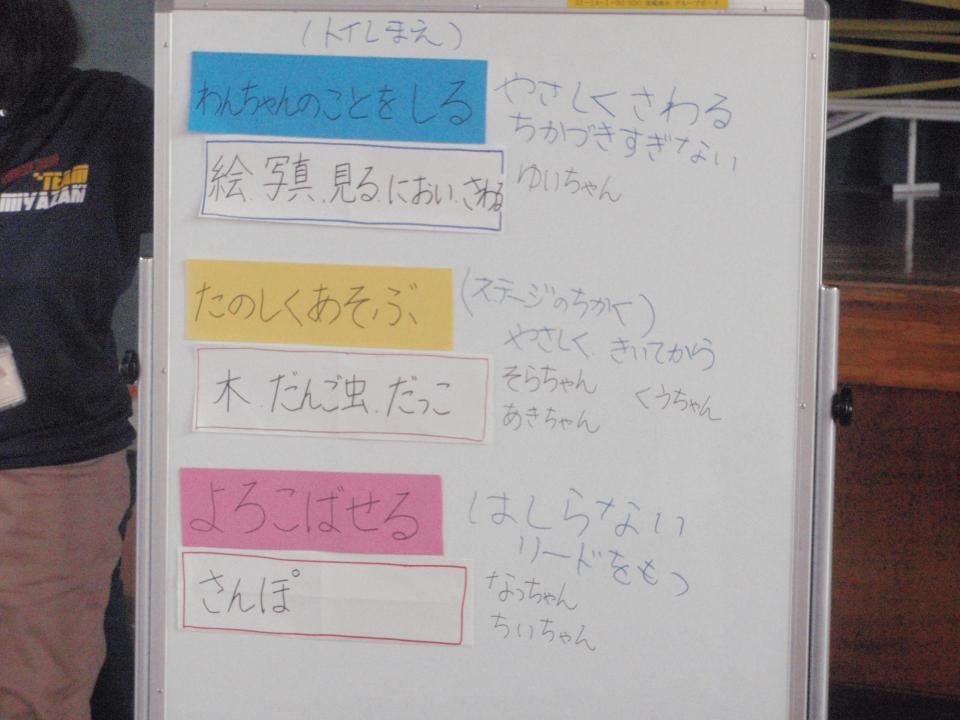 (トイレまえ)
わんちゃんのことをしる
やさしくさわる
ちかづきすぎない
絵.写真.見る.におい.さわる
ゆいちゃん
たのしくあそぶ
(ステージのちかく)
やさしく.きいてから
木.だんご虫.だっこ
そらちゃん くうちゃん
あきちゃん
よろこばせる
はしらない
リードをもつ
さんぽ
なっちゃん
ちいちゃん
TEAM
MIYAZAKI